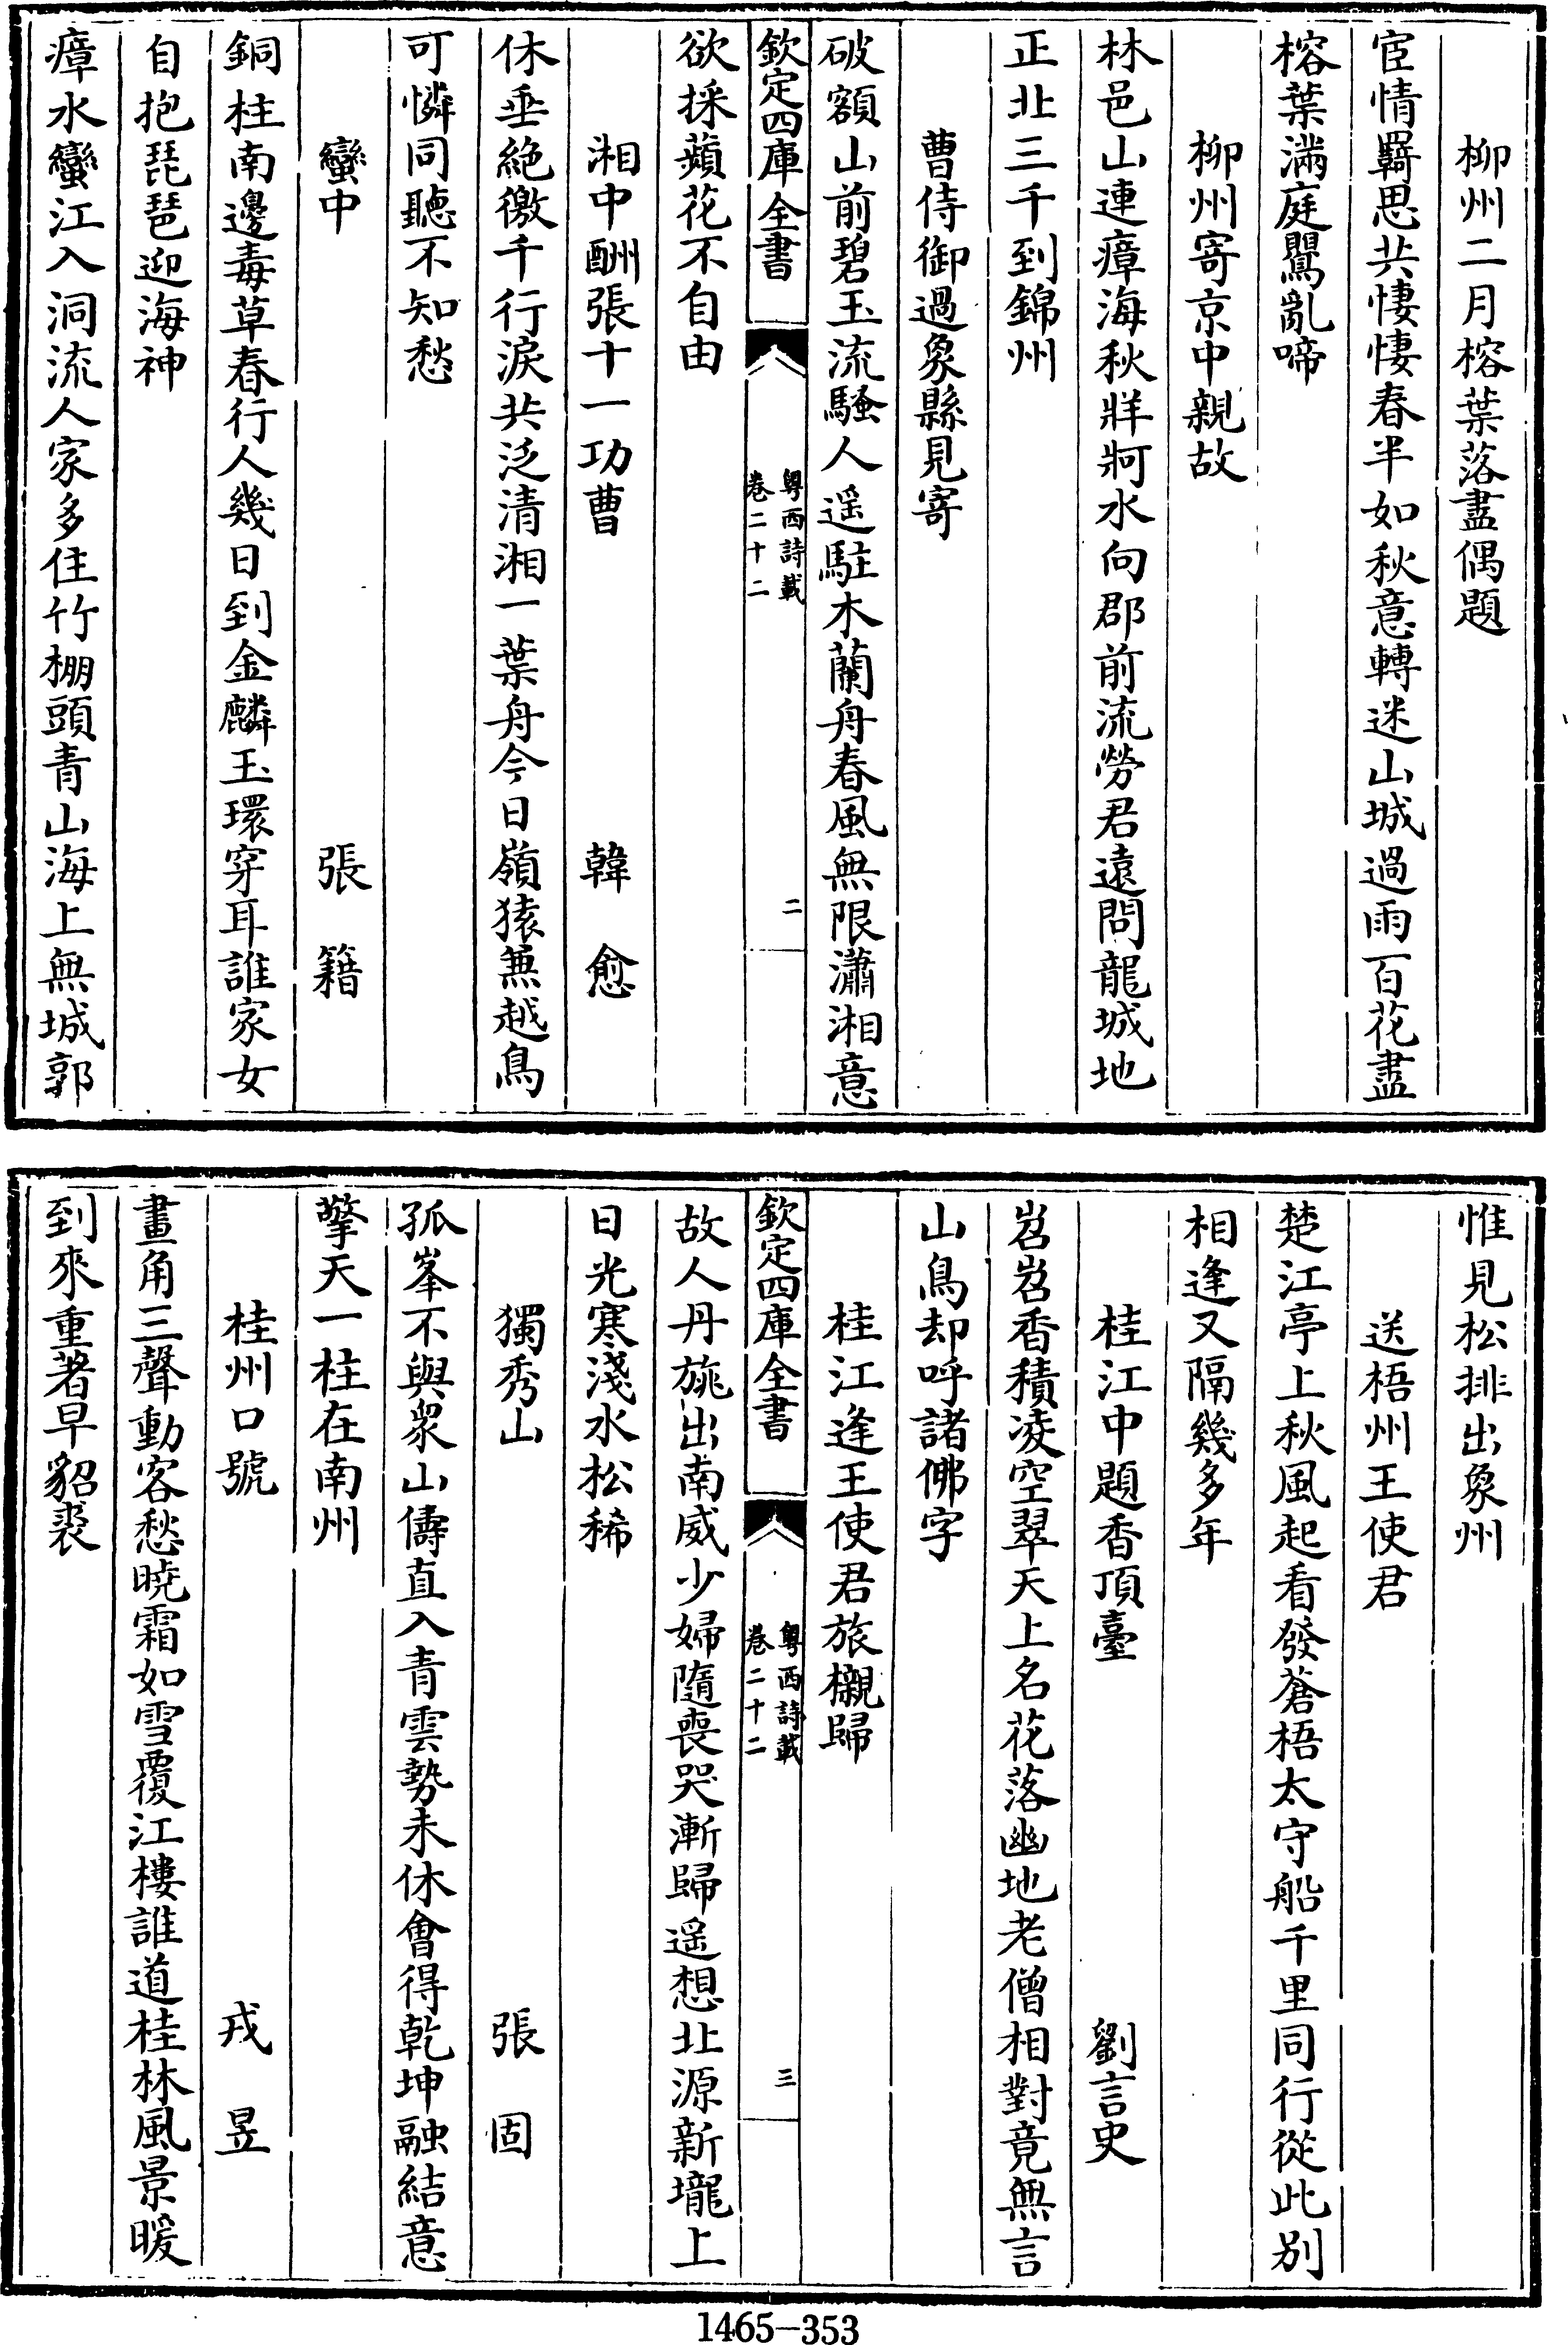 柳州二月榕葉落盡偶題
宦情羇思共悽悽春半如秋意轉迷山城過雨百花盡
榕葉滿庭鸎亂啼
柳州寄京中親故
林邑山連瘴海秋牂牁水向郡前流勞君遠問龍城地
正北三千到錦州
曹侍御過象縣見寄
破額山前碧玉流騷人遥駐木蘭舟春風無限瀟湘意
欽定四庫全書
粤西詩載
卷二十二
二
欲採蘋花不自由
湘中酬張十一功曹
韓愈
休垂絶徼千行淚共泛清湘一葉舟今日嶺猿兼越鳥
可憐同聽不知愁
蠻中
張籍
銅柱南邊毒草春行人幾日到金麟玉環穿耳誰家女
自抱琵琶迎海神
瘴水蠻江入洞流人家多住竹棚頭青山海上無城郭
惟見松排出象州
送梧州王使君
楚江亭上秋風起看發蒼梧太守船千里同行從此别
相逢又隔幾多年
桂江中題香頂臺
劉言史
岧岧香積凌空翠天上名花落幽地老僧相對竟無言
山鳥却呼諸佛字
桂江逢王使君旅櫬歸
欽定四庫全書
粤西詩載
卷二十二
三
故人丹旐出南威少婦隨喪哭漸歸遥想北源新壠上
日光寒淺水松稀
獨秀山
張固
孤峯不與衆山儔直入青雲勢未休會得乾坤融結意
擎天一柱在南州
桂州口號
戎昱
畫角三聲動客愁曉霜如雪覆江樓誰道桂林風景暖
到來重著早貂裘
1465-353